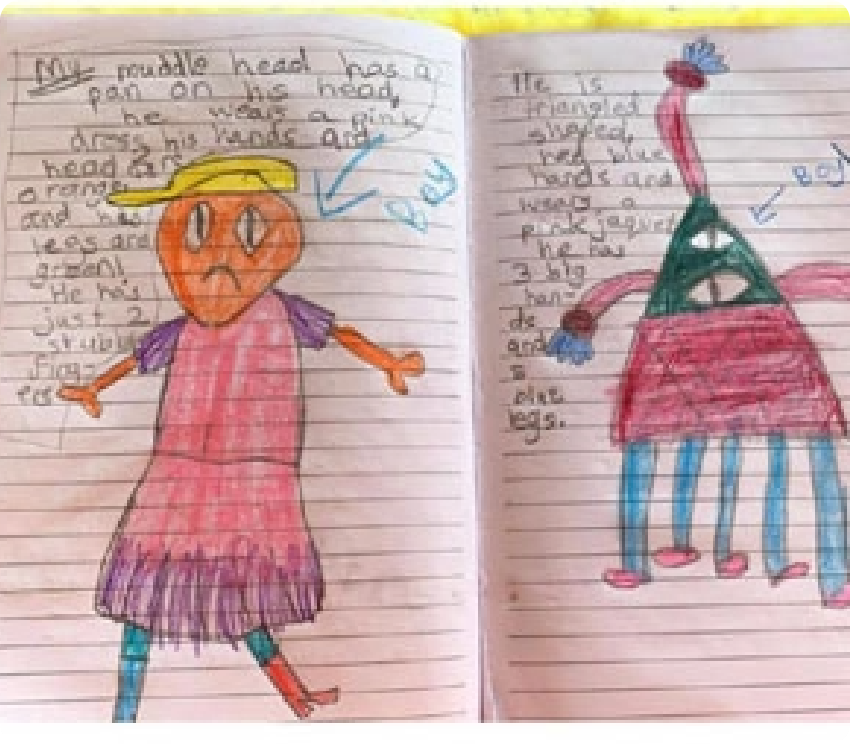 My muddle head has a
pan on his head,
he wears a pink
dress his hands and
head are
orange
and his
legs are
green!
He has
just 2
stubby
fing-
ers
Boy
He is
triangled
shaped,
hed blue
hands and
wears a
pink jaques
he has
3 big
han-
ds
and
5
blue
legs.
Boy